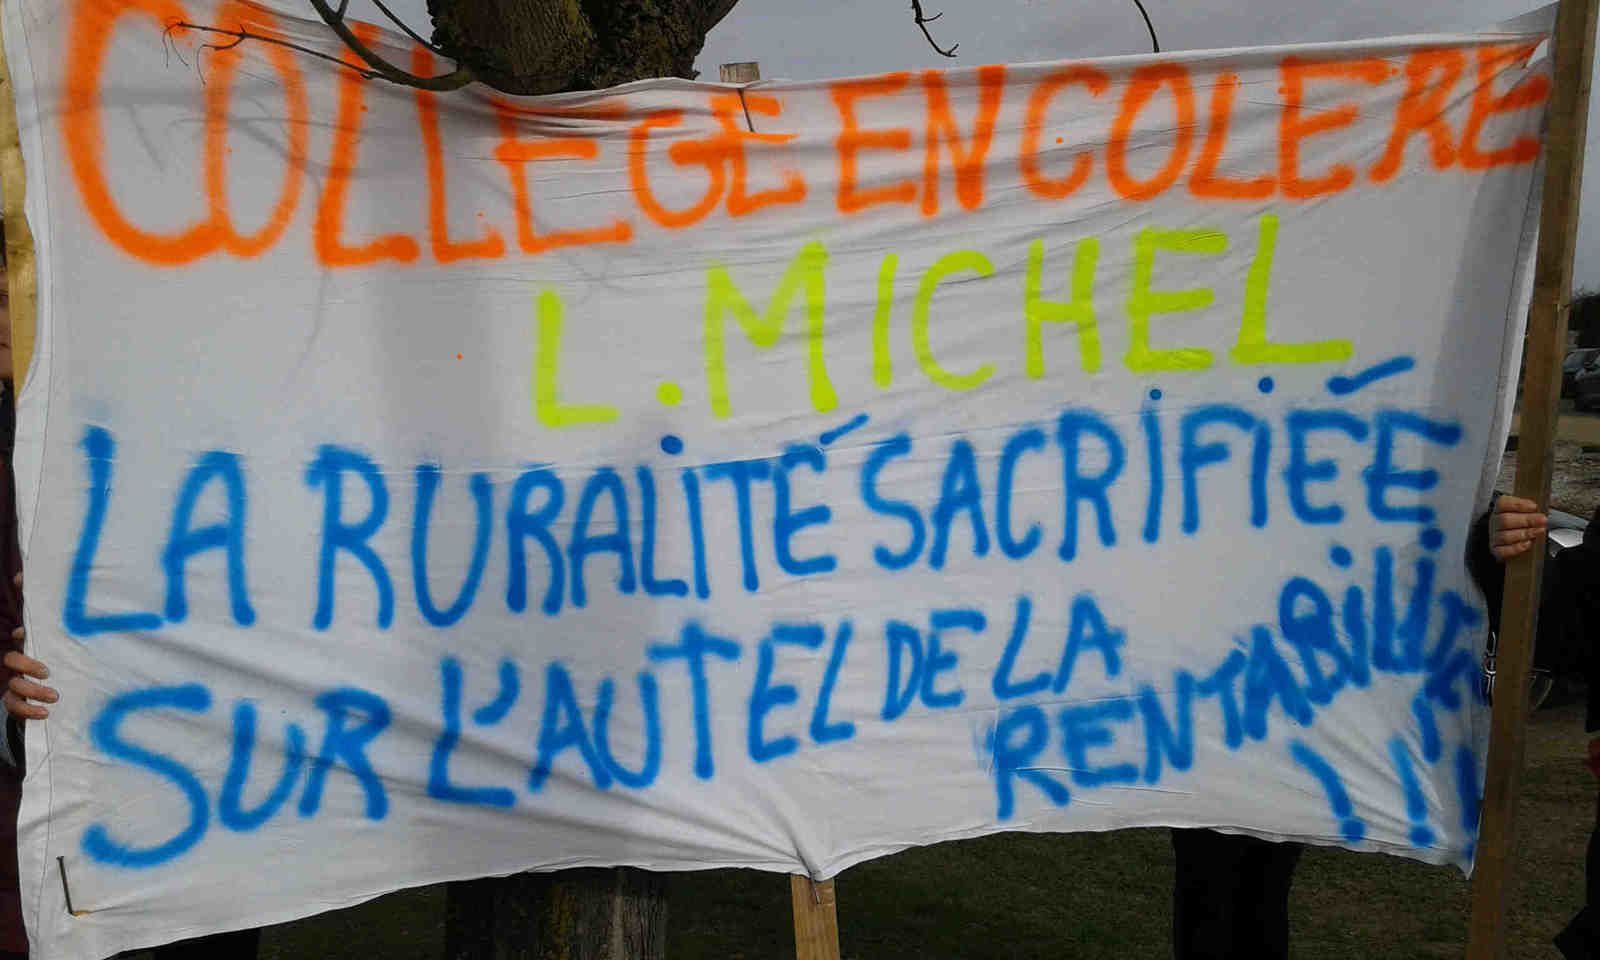 COLLEGE EN COLERE
L. MICHEL
LA RURALiTÉ SACRiFiÉE
SUR L'AUTEL DE LA
RENTABiLiTÉ !!!